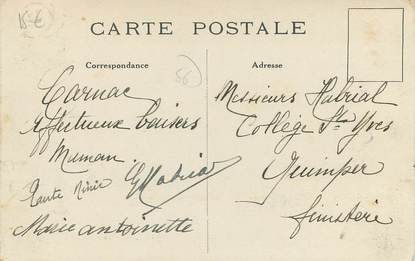 15 €
CARTE POSTALE
Correspondance
56
Adresse
Carnac
Affectueux baisers
Maman
Tante Ninie
Marie Antoinette
Messieurs Habrial
Collège St Yves
Quimper
finistère